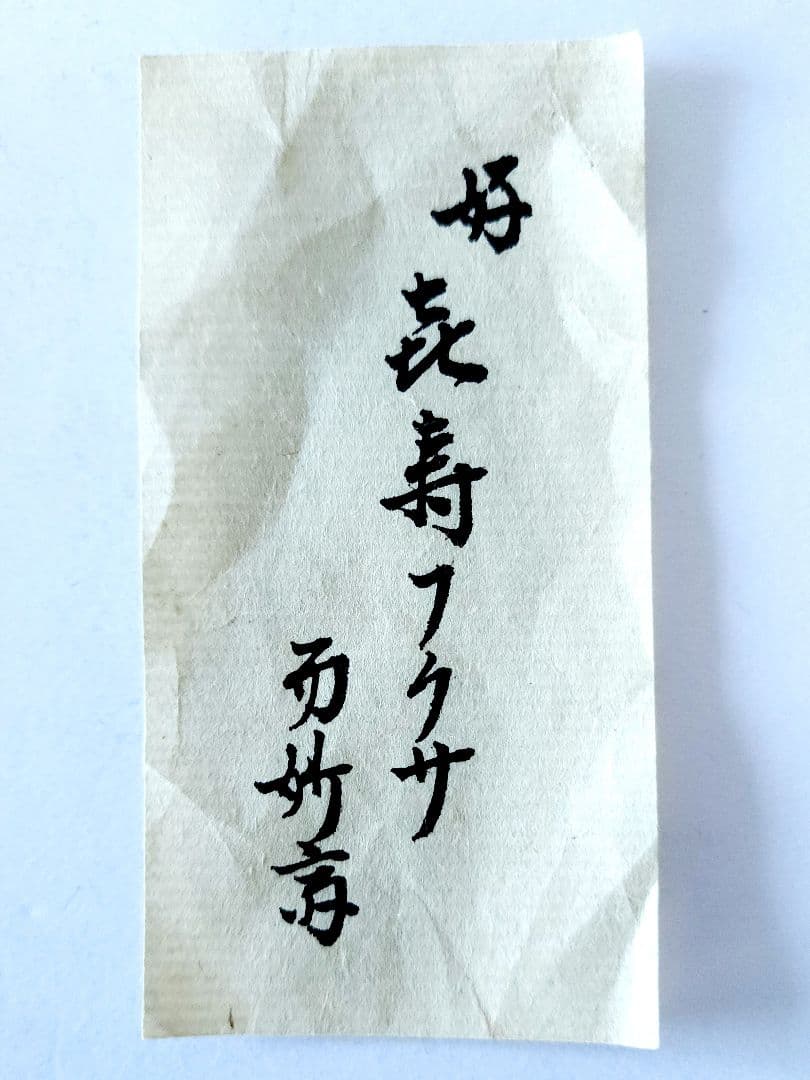 好㐂寿フクサ
而妙斎